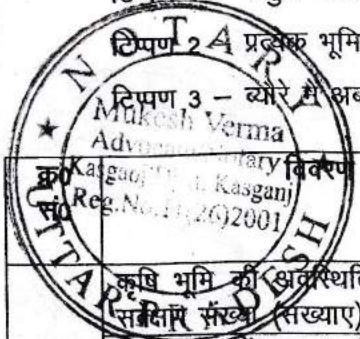 टिप्पण 2 - प्रत्येक भूमि
टिप्पण 3 – ब्योरे में अब
NOTARY
Mukesh Verma
Advocate Notary
Kasganj Kasganj
Reg.No.11(26)2001
UTTAR PRADESH
क्र0 विवरण
सं0
कृषि भूमि की अवस्थिति
सर्वेक्षण संख्या (संख्याए)